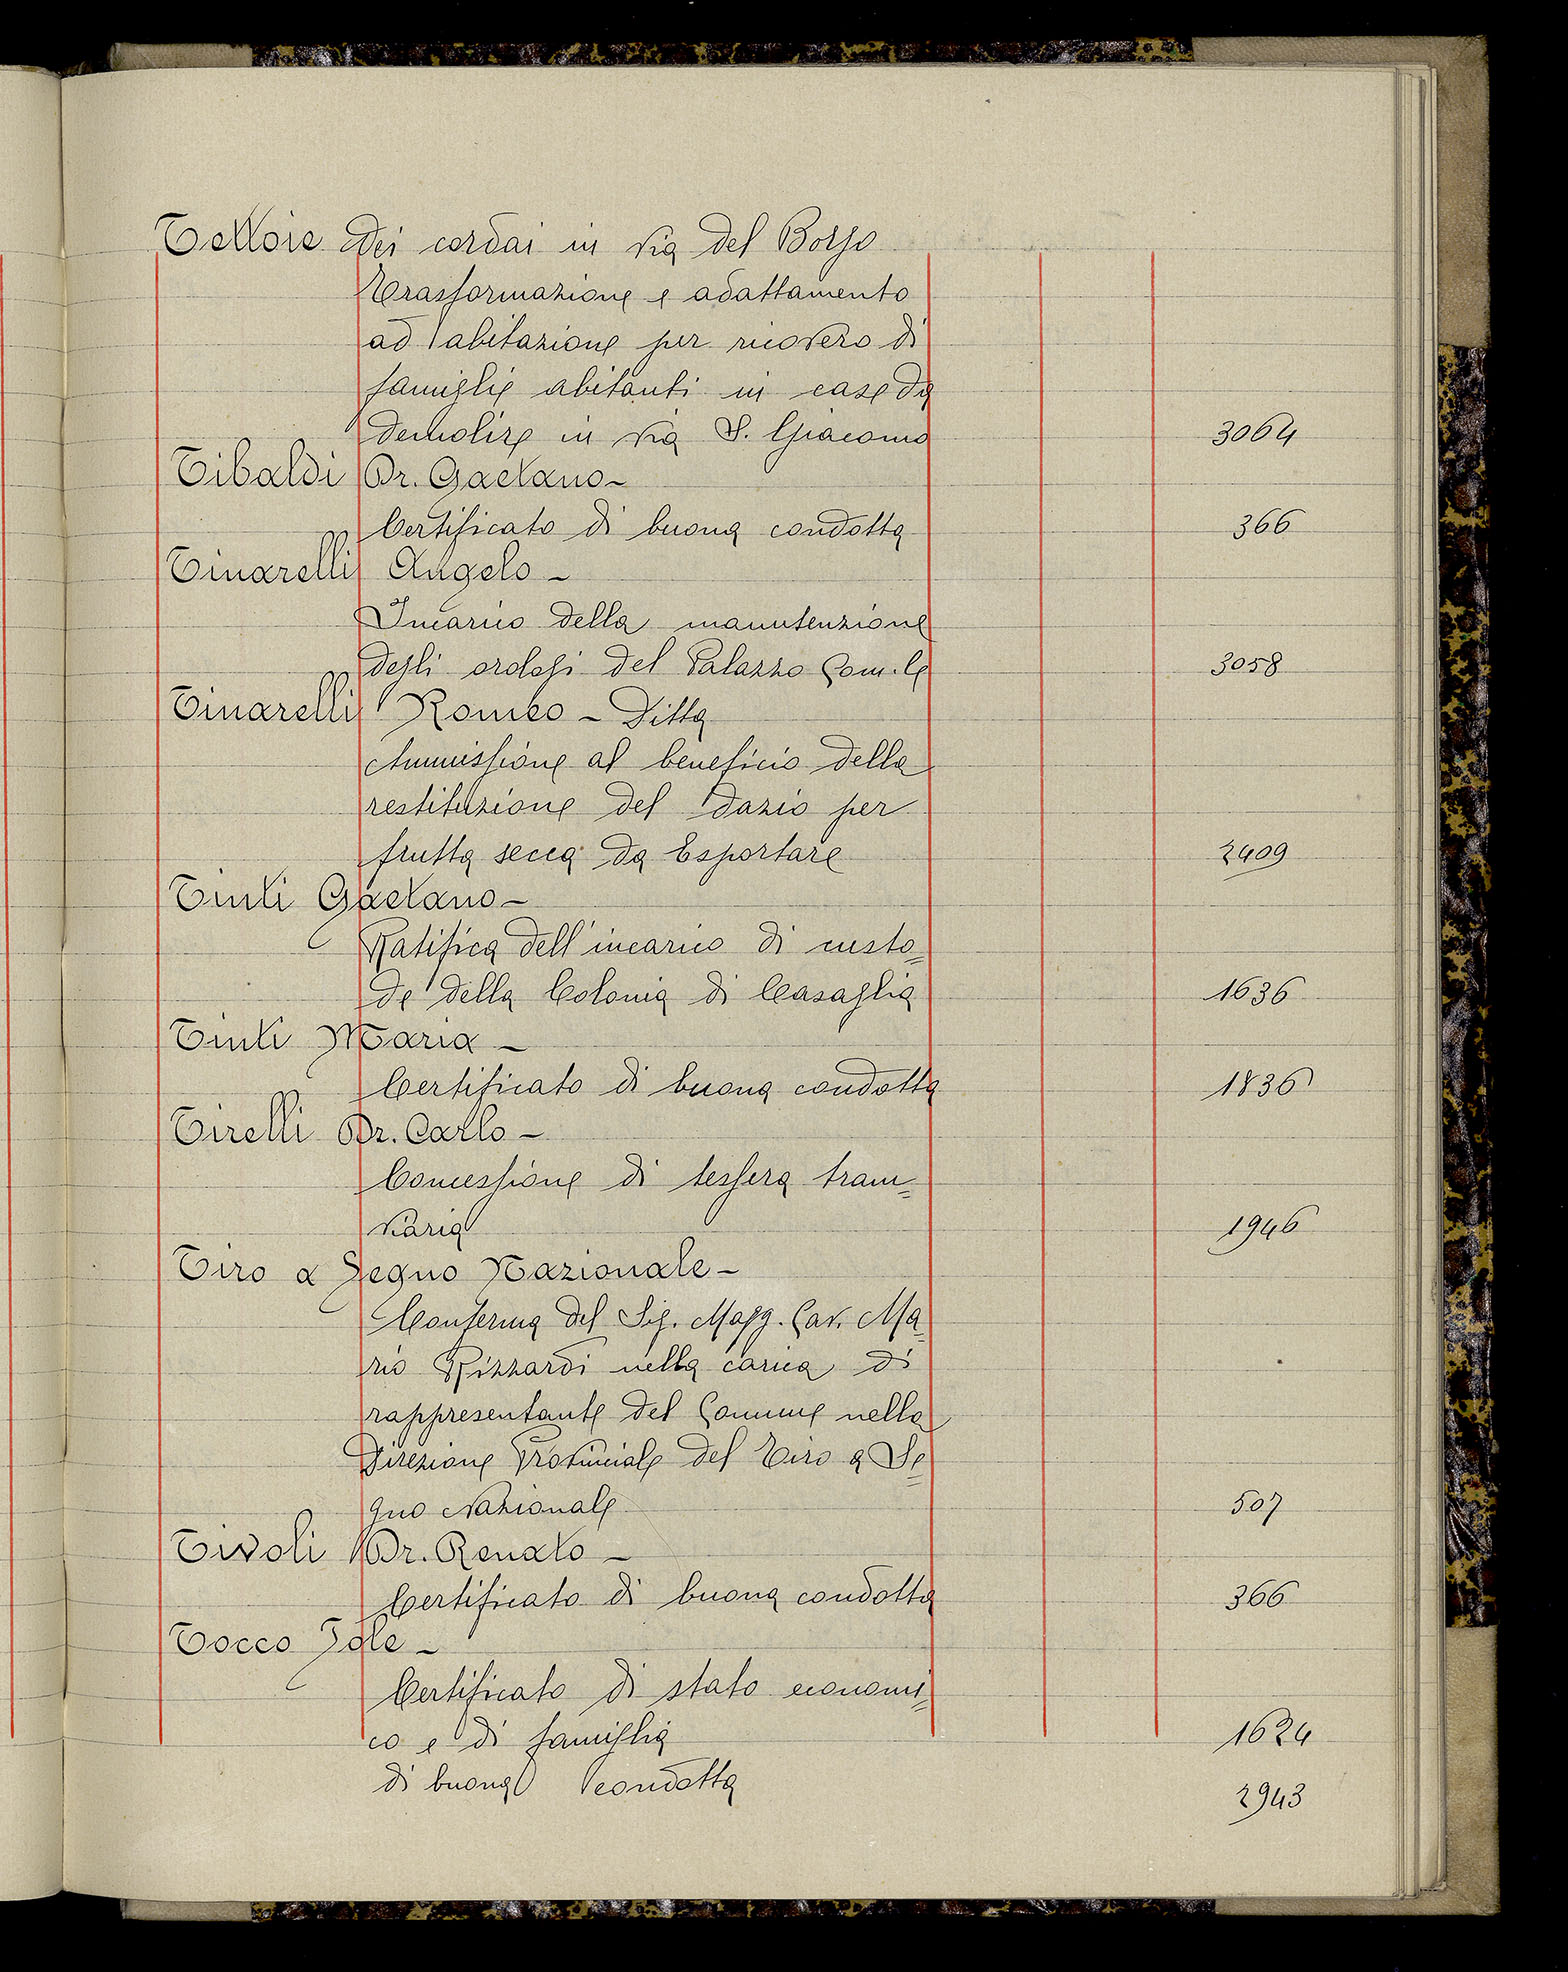 Tettoie dei cordai in via del Borgo
Trasformazione e adattamento
ad abitazione per ricovero di
famiglie abitanti in case da
demolire in via S. Giacomo 3064
Tibaldi Dr. Gaetano -
Certificato di buona condotta 366
Tinarelli Angelo -
Incarico della manutenzione
degli orologi del Palazzo Com.le 3058
Tinarelli Romeo - Ditta
Ammissione al beneficio della
restituzione del dazio per
frutta secca da Esportare 2409
Tinti Gaetano -
Ratifica dell'incarico di custo=
de della Colonia di Casaglia 1636
Tinti Maria -
Certificato di buona condotta 1836
Tirelli Dr. Carlo -
Concessione di tessera tram=
viaria 1946
Tiro a Segno Nazionale -
Conferma del Sig. Magg. Cav. Ma=
rio Rizzardi nella carica di
rappresentante del Comune nella
Direzione Provinciale del Tiro a Se=
gno Nazionale 507
Tivoli Dr. Renato -
Certificato di buona condotta 366
Tocco Jole -
Certificato di stato economi=
co e di famiglia 1624
di buona condotta 2943